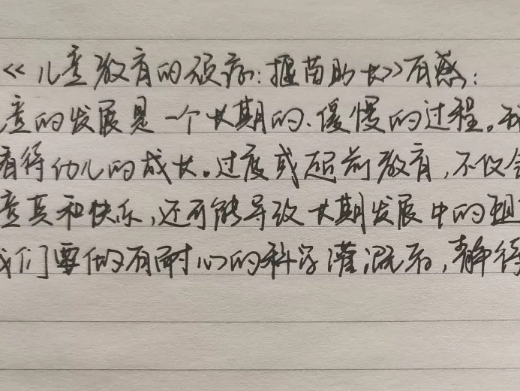 《儿童教育的顽疾:揠苗助长》有感:
童的发展是一个长期的、缓慢的过程。
看待幼儿的成长。过度或超前教育,不仅会
童真和快乐,还可能导致长期发展中的阻
我们要做有耐心的科学灌溉者,静待